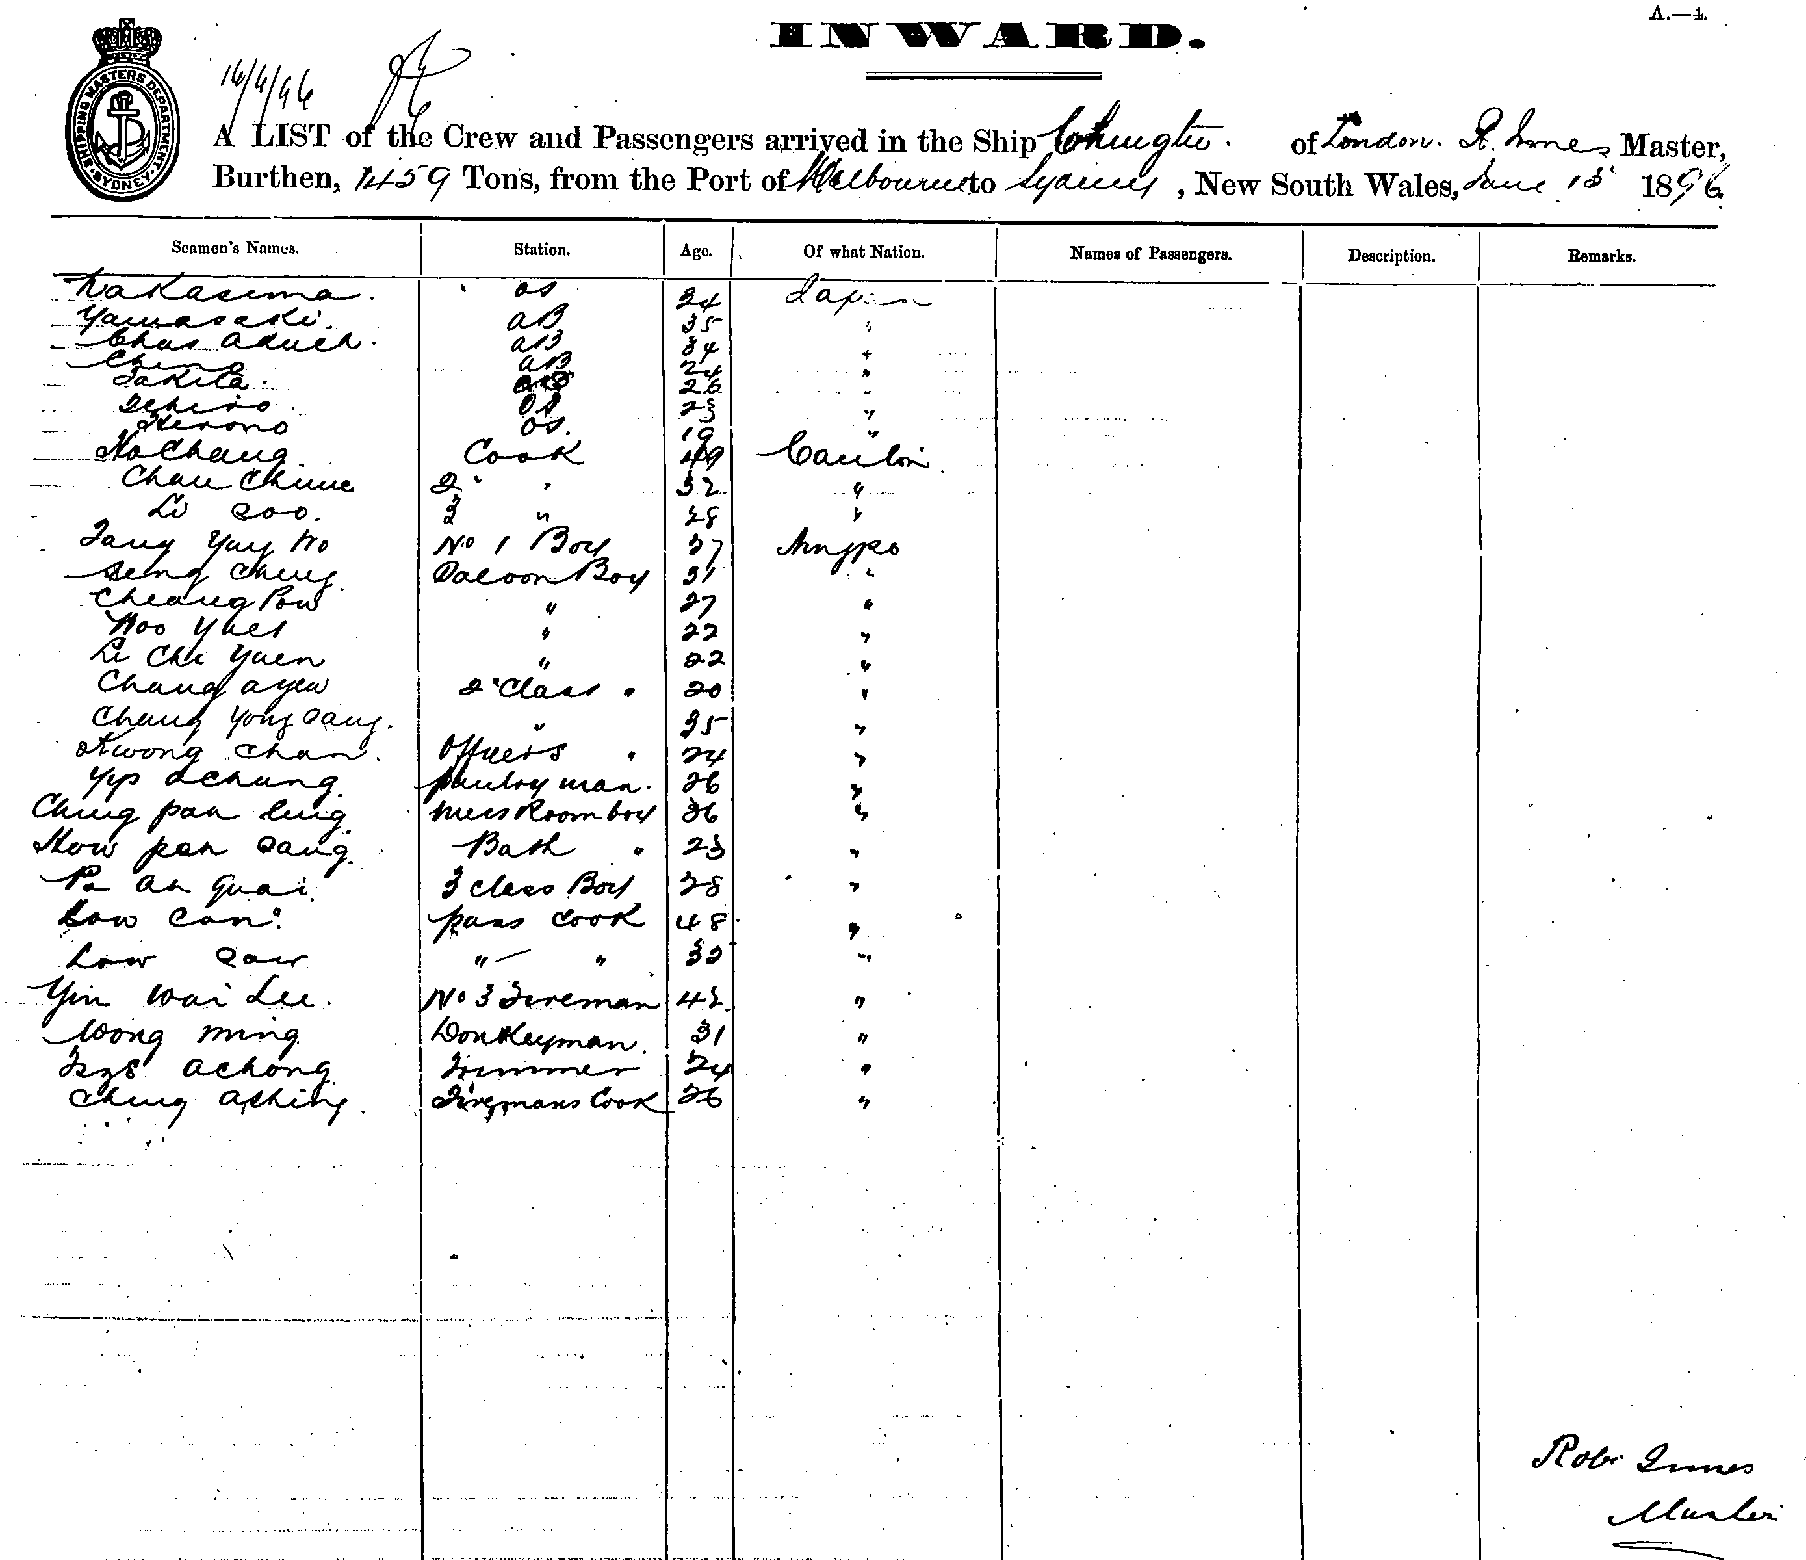 A.—4.
INWARD.
SHIPPING MASTERS DEPARTMENT SYDNEY
16/6/96
A LIST of the Crew and Passengers arrived in the Ship Chingtu. of London. R. Innes Master,
Burthen, 1459 Tons, from the Port of Melbourne to Sydney, New South Wales, June 15 1896.
Seamen's Names. Station. Age. Of what Nation. Names of Passengers. Description. Remarks.
Nakasima. OS 24 Japan
Yamasaki. AB 35 "
Chas AB 34 "
AB 24 "
Takita. 26 "
Ichiro OS 23 "
Herono OS. 19 "
Ho Chang Cook 49 Canton.
Chau Chune 2 " 32 "
Li Soo. 3 " 28 "
Tang Yuy Wo No 1 Boy 37 Ningpo
Seng Cheng Saloon Boy 31 "
Cheang Pow " 27 "
Woo Yuet " 22 "
Li Chi Yuen " 22 "
Chang Ayew 2 Class " 20 "
Chang Yong Sang. " 35 "
Kwong Chan. Officers " 24 "
Yip Achung. Pantry man. 26 "
Ching pah ling. Mess Room boy 26 "
How pah Sang. Bath " 23 "
Ah Guai. 3 Class Boy 28 "
Low Can. pass Cook 48 "
Low Saw " " 32 "
Yin Wai Lee. No 3 Fireman 42 "
Wong Ming Donkeyman. 31 "
Achong Trimmer 24 "
Ching Aching. Firemans Cook 26 "
Robt Innes
Master